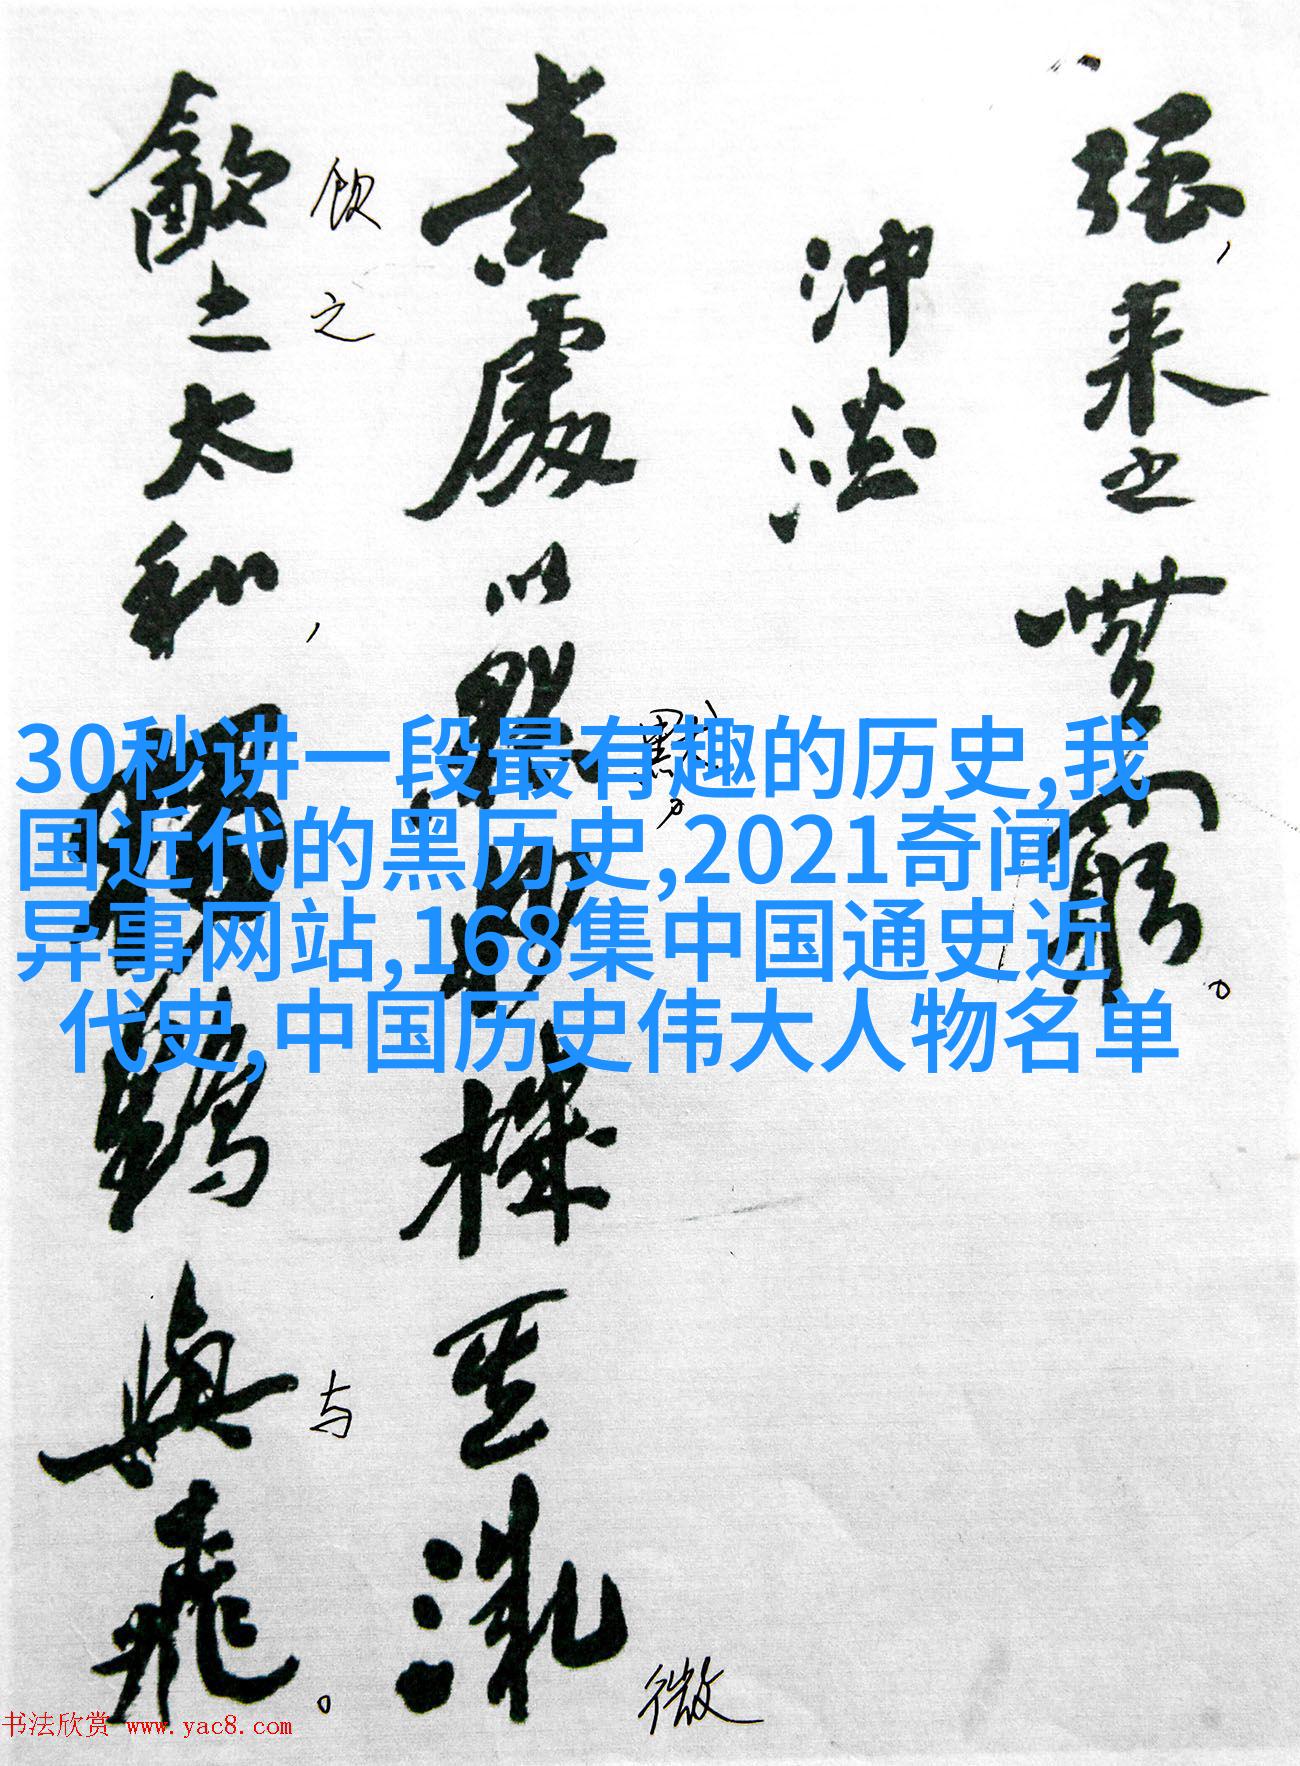 强，来之無窮。
沖淡
素處以默妙機其微
默。
微
飲之太和，獨鶴與飛。
饮之
与
30秒讲一段最有趣的历史,我
国近代的黑历史,2021奇闻
异事网站,168集中国通史近
代史,中国历史伟大人物名单
书法欣赏 www.yac8.com